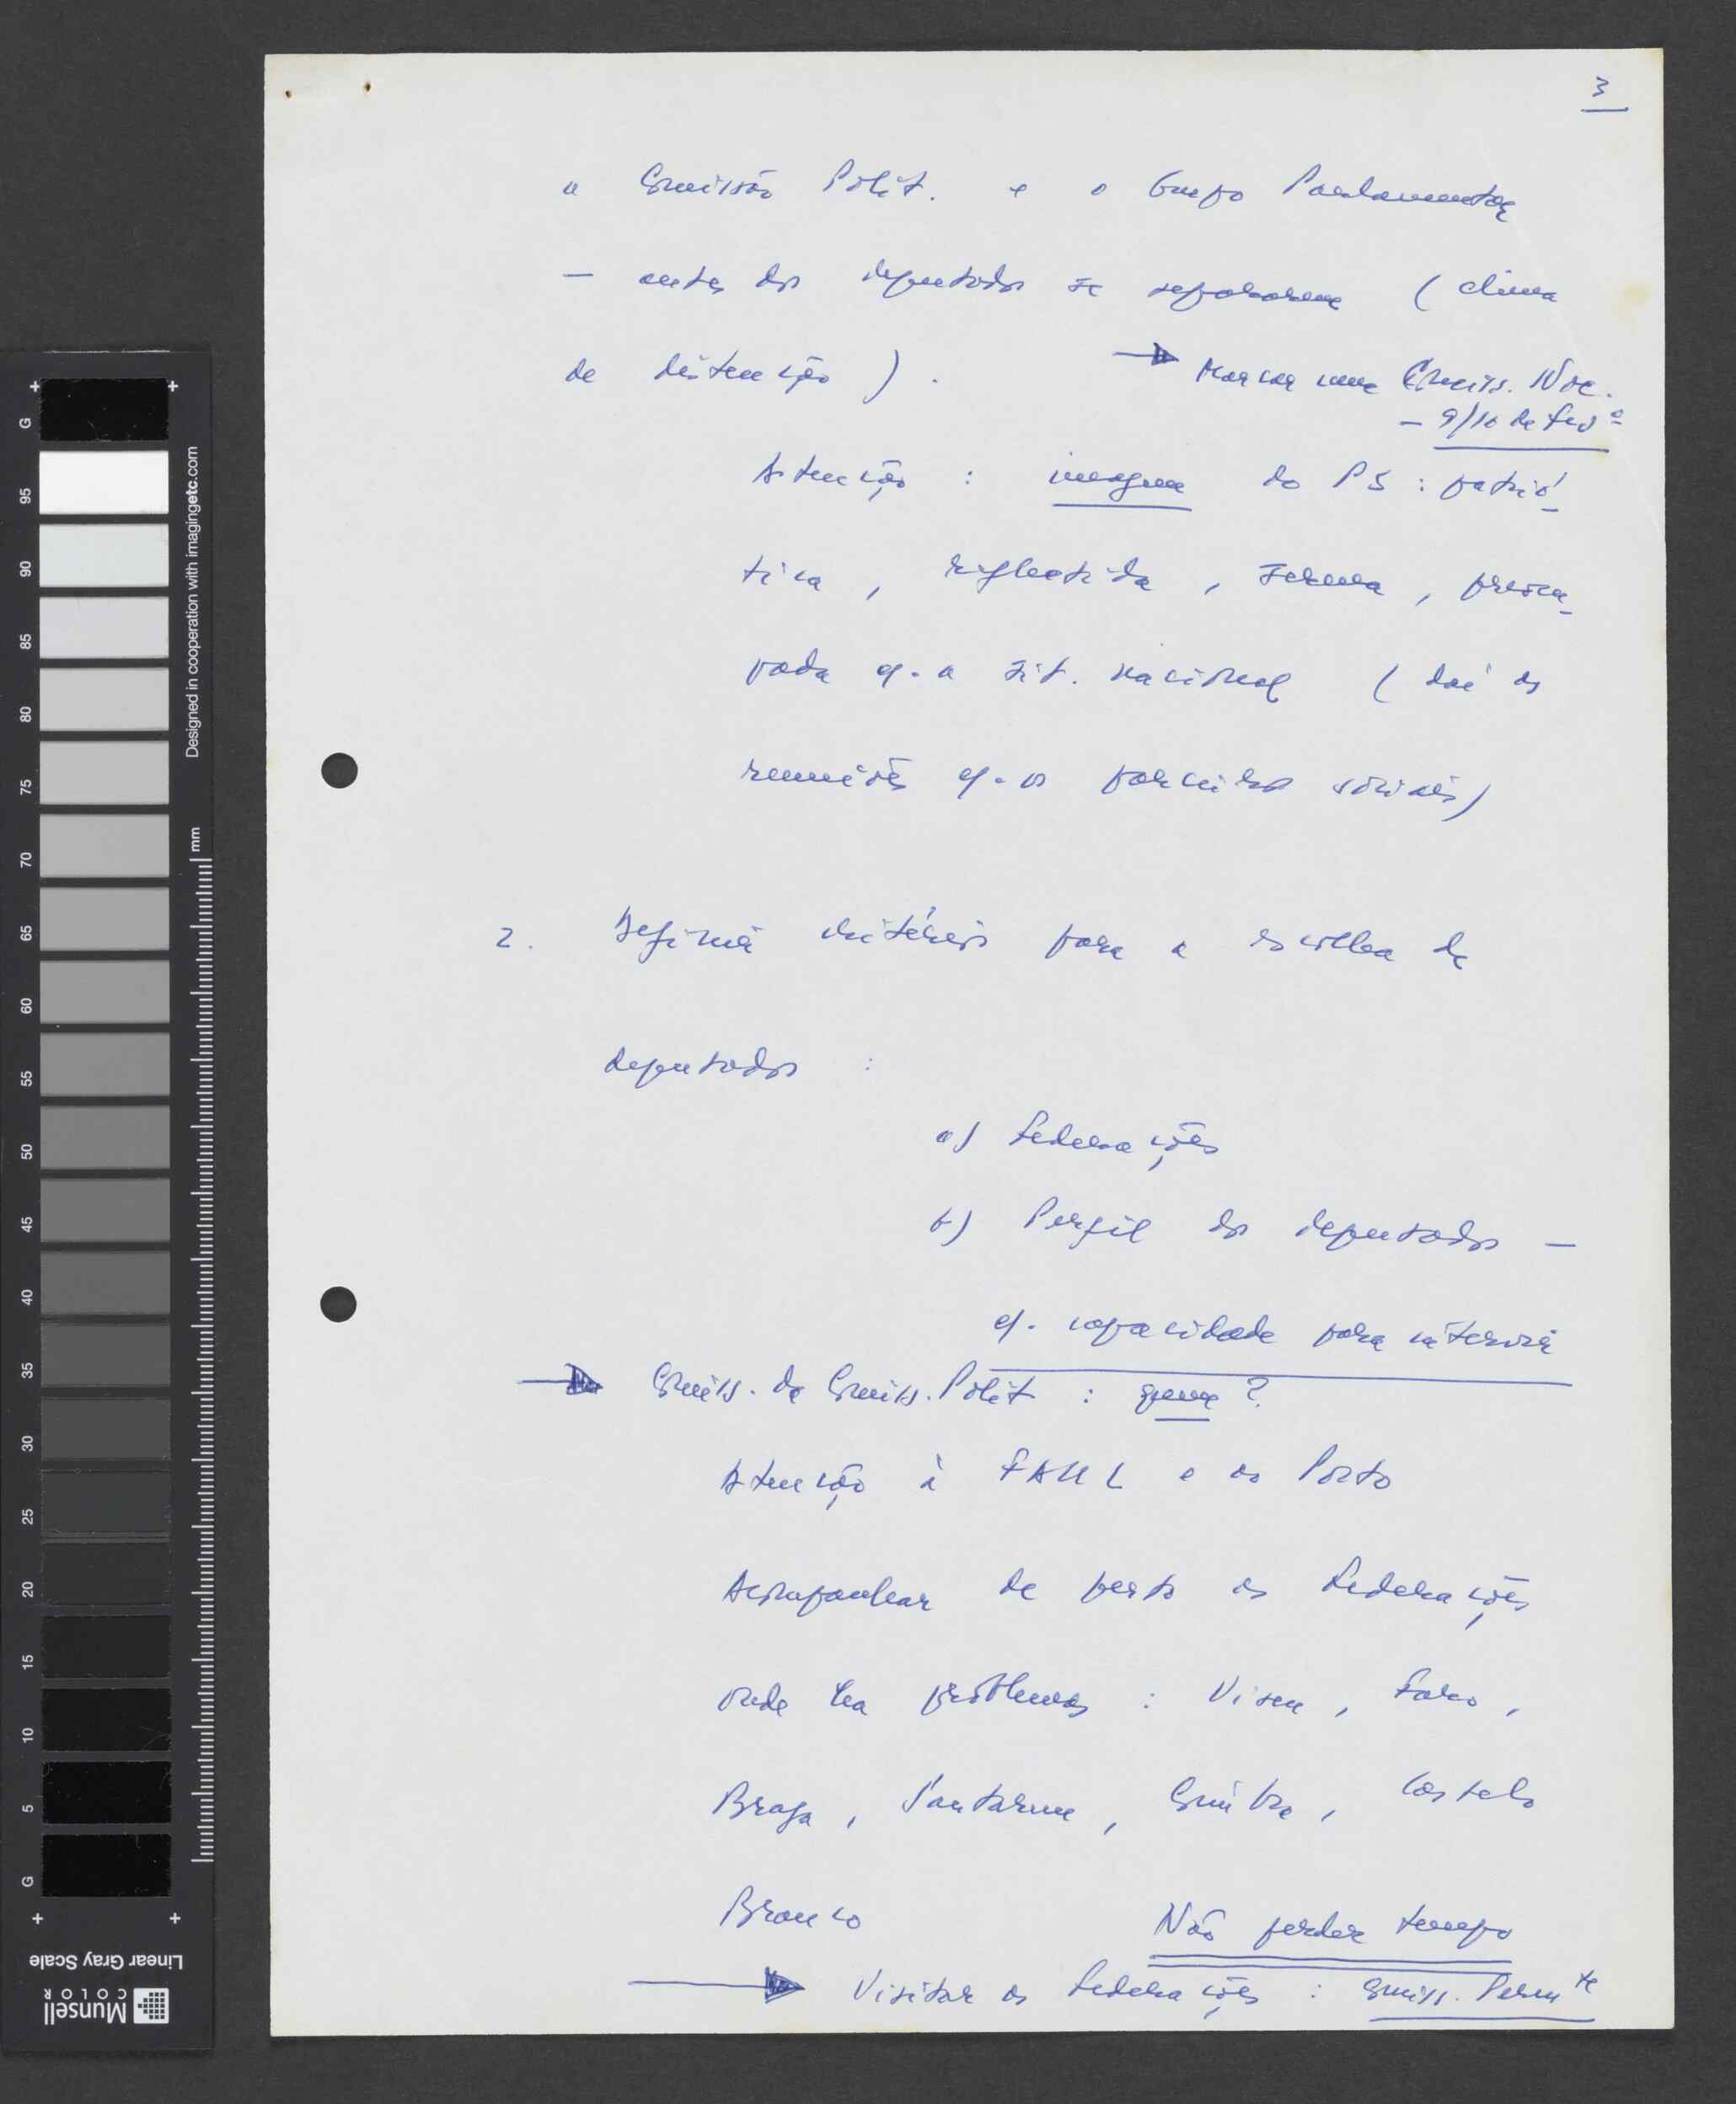 3
a Comissão Polít. e o Grupo Parlamentar
— antes dos deputados se separarem (clima
de distenção).
→ Marcar uma Comiss. Nac.
— 9/10 de Fevº
Atenção : imagem do PS : patrió-
tica, reflectida, serena, preocu-
pada c/. a sit. nacional (daí as
reuniões c/. os parceiros sociais)
2. Definir critérios para a escolha de
deputados :
a) Federações
b) Perfil dos deputados —
c/. capacidade para intervir
→ Comiss. da Comiss. Polít : quem ?
Atenção à FAUL e ao Porto
Acompanhar de perto as Federações
onde ha problemas : Viseu, Faro,
Braga, Santarem, Coimbra, Castelo
Branco
Não perder tempo
→ Visitar as Federações : Comiss. Permte
G 95 90 85 80 75 70 65 60 55 50 45 40 35 30 25 20 15 10 5 G
Designed in cooperation with imagingetc.com
mm
Linear Gray Scale
Munsell
COLOR